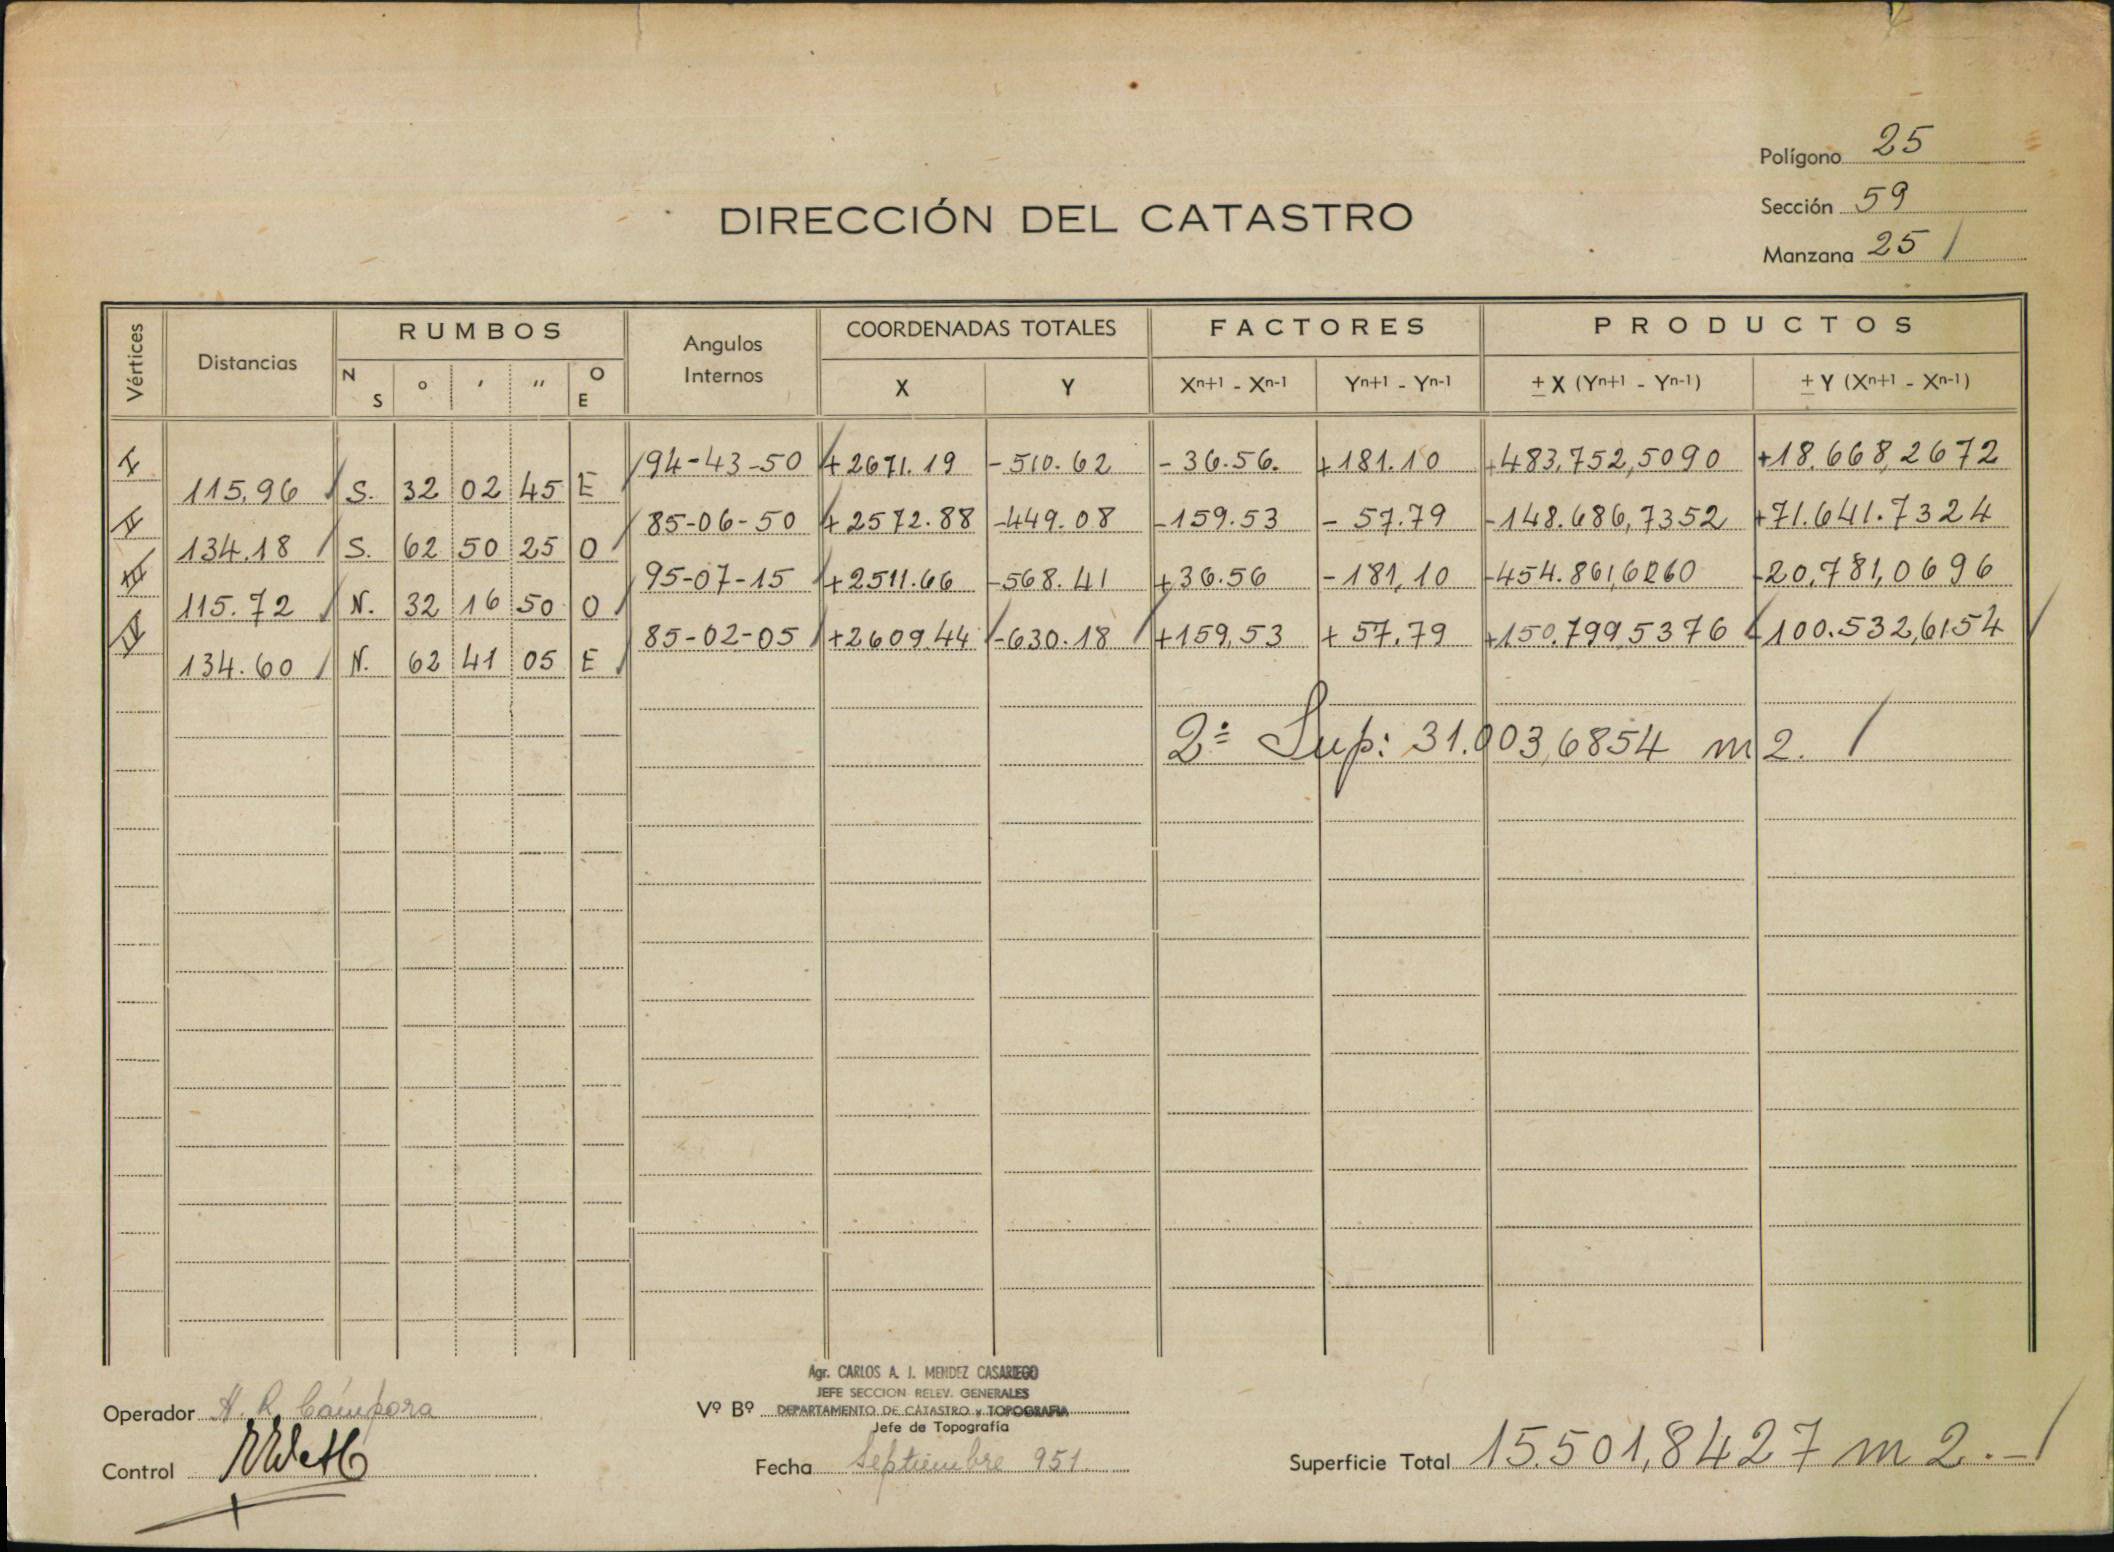 Polígono 25
Sección 59
Manzana 25 /
DIRECCIÓN DEL CATASTRO
Vértices Distancias RUMBOS Angulos Internos COORDENADAS TOTALES FACTORES PRODUCTOS
N S o ' " O E X Y Xn+1 - Xn-1 Yn+1 - Yn-1 ± X (Yn+1 - Yn-1) ± Y (Xn+1 - Xn-1)
I 94-43-50 +2671.19 -510.62 -36.56. +181.10 +483,752,5090 +18.668,2672
115,96 S. 32 02 45 E
II 85-06-50 +2572.88 -449.08 -159.53 -57.79 -148.686,7352 +71.641.7324
134.18 S. 62 50 25 O
III 95-07-15 +2511.66 -568.41 +36.56 -181,10 -454.861,6260 -20,781,0696
115.72 N. 32 16 50 O
IV 85-02-05 +2609.44 -630.18 +159,53 +57,79 +150.799,5376 -100.532,6154
134.60 N. 62 41 05 E
2= Sup: 31.003,6854 m2.
Agr. CARLOS A. J. MENDEZ CASARIEGO
JEFE SECCION RELEV. GENERALES
Operador H. R. Cámpora Vº Bº DEPARTAMENTO DE CATASTRO y TOPOGRAFIA
Jefe de Topografía
Control Fecha Septiembre 951 Superficie Total 15.501,8427 m2.-